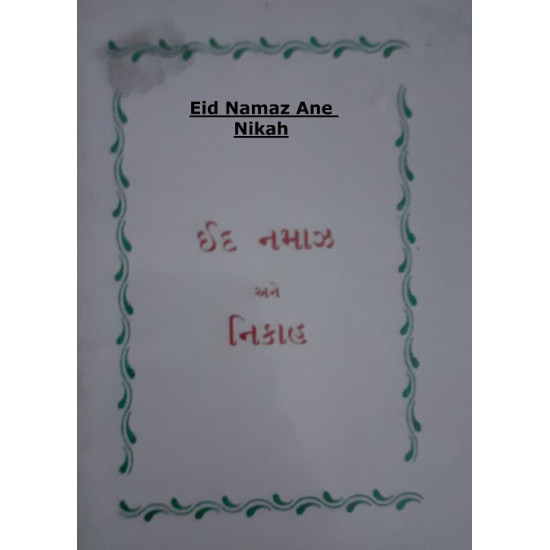 Eid Namaz Ane
Nikah
ઈદ નમાઝ
અને
નિકાહ